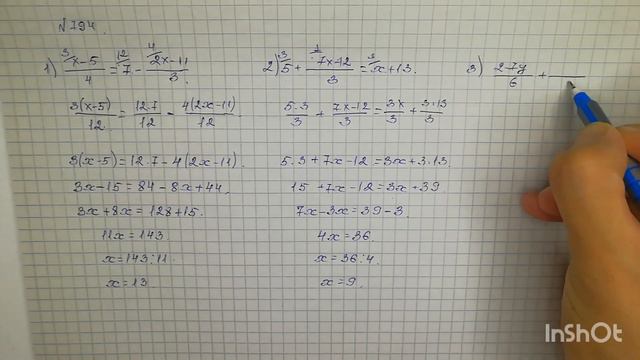 №794.
1) ³ x-5/4 = ¹² 7 - ⁴ 2x-11/3.
3(x-5)/12 = 12.7/12 - 4(2x-11)/12.
3(x-5)=12.7-4(2x-11).
3x-15=84-8x+44,
3x+8x=128+15.
11x=143.
x=143:11.
x=13.
2) ³ 5 + ¹ 7x-12/3 = ³ x+13.
5.3/3 + 7x-12/3 = 3x/3 + 3.13/3
5.3+7x-12=3x+3.13.
15+7x-12=3x+39
7x-3x=39-3.
4x=36.
x=36:4.
x=9.
3) 2-7y/6 +
InShOt